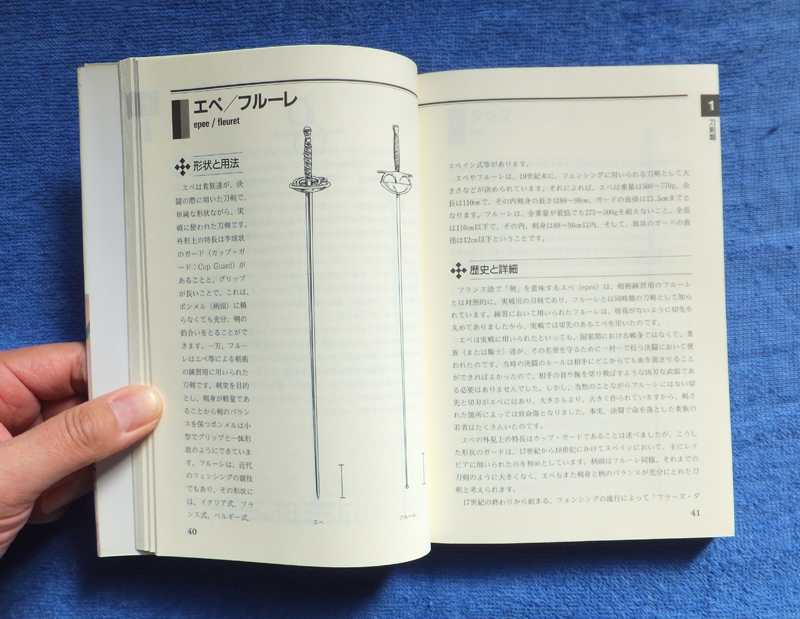 エペ／フルーレ
epee / fleuret
形状と用法
エペは貴族達が、決
闘の際に用いた刀剣で、
単純な形状ながら、実
戦に使われた刀剣です。
外形上の特長は半球状
のガード（カップ・ガ
ード：Cup Guard）が
あることと、グリップ
が長いことで、これは、
ポンメル（柄頭）に頼
らなくても充分、剣の
釣合いをとることがで
きます。一方、フルー
レはエペ等による剣術
の練習用に用いられた
刀剣です。刺突を目的
とし、剣身が軽量であ
ることから剣のバラン
スを保つポンメルは小
型でグリップと一体形
状のようにできていま
す。フルーレは、近代
のフェンシングの競技
でもあり、その形状に
は、イタリア式、フラ
ンス式、ベルギー式、
エペ
フルーレ
40
1
刀剣類
スペイン式等があります。
エペやフルーレは、19世紀末に、フェンシングに用いられる刀剣として大
きさなどが決められています。それによれば、エペは重量は500〜770g、全
長は110cmで、その内剣身の長さは88〜90cm、ガードの直径は13.5cmまでと
なります。フルーレは、全重量が最低でも275〜500gを超えないこと。全長
は110cm以下で、その内、剣身は88〜90cm以内、そして、皿状のガードの直
径は12cm以下ということです。
歴史と詳細
フランス語で「剣」を意味するエペ（epee）は、剣術練習用のフルーレ
とは対照的に、実戦用の刀剣であり、フルーレとは同時期の刀剣として知ら
れています。練習において用いられたフルーレは、怪我がないように切先を
丸めてありましたから、実戦では切先のあるエペを用いたのです。
エペは実戦に用いられたといっても、国家間における戦争ではなくて、貴
族（または騎士）達が、その名誉を守るために一対一で行う決闘において使
われたのです。当時の決闘のルールは相手にどこからでも血を流させること
ができればよかったので、相手の首や腕を切り飛ばすような凶刃な武器であ
る必要はありませんでした。しかし、当然のことながらフルーレにはない切
先と切刃がエペにはあり、大きさもより、大きく作られていますから、刺さ
れた箇所によっては致命傷となりました。事実、決闘で命を落とした貴族の
若者はたくさんいたのです。
エペの外見上の特長はカップ・ガードであることは述べましたが、こうし
た形状のガードは、17世紀から18世紀にかけてスペインにおいて、主にレイ
ピアに用いられたのを初めとしています。柄頭はフルーレ同様、それまでの
刀剣のように大きくなく、エペもまた剣身と柄のバランスが充分にとれた刀
剣と考えられます。
17世紀の終わりから始まる、フェンシングの流行によって「フラーズ・ダ
41